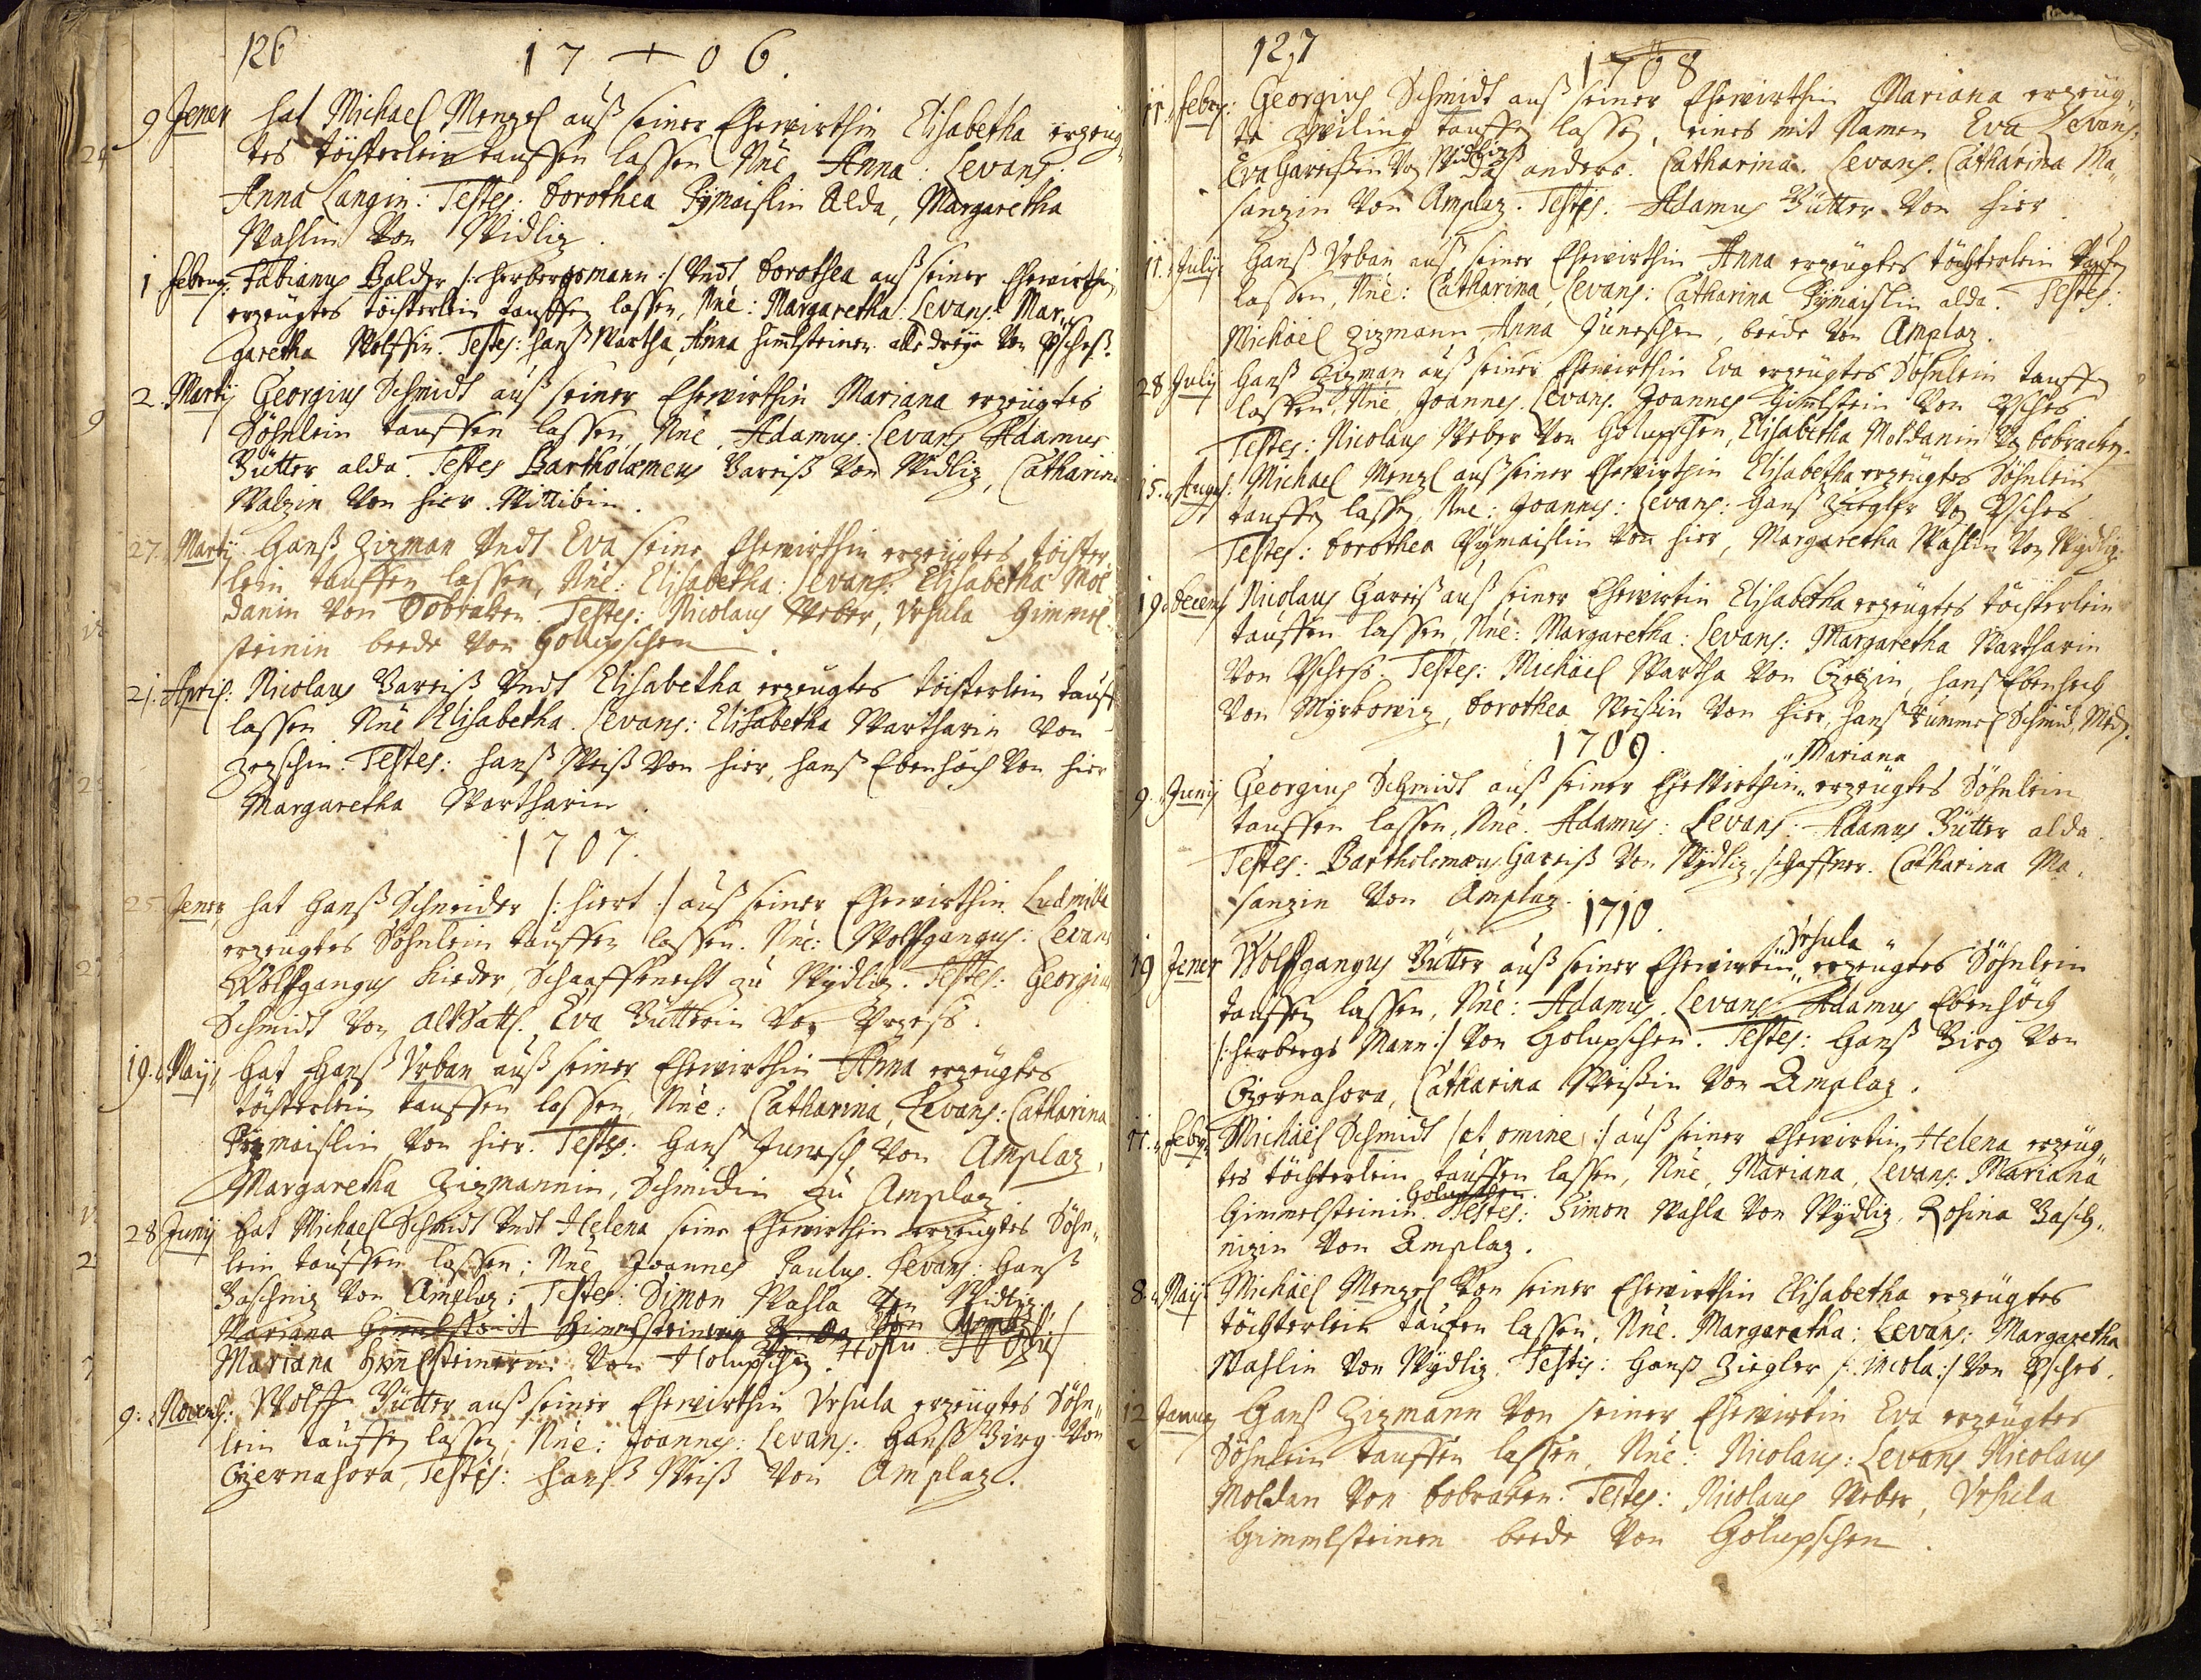 126
17 + 06.
9 Jener hat Michael Menzel auß seiner Ehewirthin Elisabetha erzeug„
tes töchterlein tauffen lassen Nne Anna: Levans:
Anna Langin: Testes: Dorothea Pymaislin Alda, Margaretha
Wahlin Von Widliz.
1 Febru: Fabianus Balder /: herbergsmann :/ Undt Dorothea auß seiner Ehewirthin
erzeugtes töchterlein tauffen lassen, Nne: Margaretha: Levans: Mar„
garetha Wolffin. Testes: hanß Wartha, Anna himlsteinen alle dreye Von Pscheß.
2. Martij Georgius Schmidt auß seiner Ehewirthin Mariana erzeugtes
Söhnlein tauffen lassen, Nne, Adamus: Levans Adamus
Bütter alda. Testes Bartholæmeus Gareiß Von Widliz, Catharina
von hier.
27. Martij Hanß Zizman Undt Eva seine Ehewirthin erzeugtes töchter„
lein tauffen lassen, Nne: Elisabetha: Levans: Elisabetha Mol
danin Von Dobraken. Testes: Nicolaus Weber, Ursula Gimmel„
steinin beede Von Golupschen.
21. April: Nicolaus Gareiß Undt Elisabetha erzeugtes töchterlein tauff
lassen Nne Elisabetha. Levans: Elisabetha Wartharin Von
Zepschin. Testes: hanß Weiß Von hier, hanß Ebenhöch Von hier
Margaretha Wartharin.
1707.
25. Jener hat Hanß Schneider /: hiert :/ auß seiner Ehewirthin Ludmilla
erzeugtes Söhnlein tauffen lassen. Nne: Wolfgangus: Levans
Wolfgangus Rieder, Schaaffknecht zu Wydliz. Testes: Georgius
Schmidt Von altSattl. Eva Bütterin Von
19. Maij hat Hanß Urban auß seiner Ehewirthin Anna erzeugtes
töchterlein tauffen lassen, Nne: Catharina, Levans: Catharina
Pizmaislin Von hier. Testes: Hanß Junesch Von Amplaz,
Margaretha Zizmannin, Schmidin zu Amplaz.
28 Junij hat Michael Schmidt Undt Helena seine Ehewirthin erzeugtes Söhn„
lein tauffen lassen: Nne Joannes Paulus. Levans: Hanß
Baschniz Von Amplaz: Testes: Simon Wahla Von Widliz,
Mariana
Mariana Himlsteinerin Von Holupschen.
9. Novemb: Wolff Bütter auß seiner Ehewirthin Ursula erzeugtes Söhn„
lein tauffen lassen, Nne: Joannes: Levans: Hanß Birg Von
Czernahora, Testes: Hanß Weiß Von Amplaz.
127
1708
11. Febr: Georgius Schmidt auß seiner Ehewirthin Mariana erzeug„
te Zwiling tauffen lassen, eines mit Namen Eva Levans:
Eva Gareißin Von Widliz das anders. Catharina. Levans. Catharina Ma„
sanzin Von Amplaz. Testes: Adamus Bütter Von hier.
11. July Hanß Urban auß seiner Ehewirthin Anna erzeugtes töchterlein tauffen
lassen, Nne: Catharina, Levans: Catharina Pymaislin alda. Testes:
Michäel Zizmann, Anna Juneschen, beede Von Amplaz.
28 Julij Hanß Zizman auß seiner Ehewirthin Eva erzeugtes Söhnlein tauffen
lassen, Nne, Joannes. Levans. Joannes Himlstein Von Psches
Testes: Nicolaus Weber Von Golupschen, Elisabetha Moldanin Von Dobracken.
15. Augus: Michael Menzl auß seiner Ehewirthin Elisabetha erzeugtes Söhnlein
tauffen lassen, Nne: Joannes: Levans: Hanß Ziegler Von Psches
Testes: Dorothea Pymaislin Von hier, Margaretha Wahlin Von Wydliz.
19. Decemb Nicolaus Gareiß auß seiner Ehewirtin Elisabetha erzeugtes töchterlein
tauffen lassen, Nne: Margaretha: Levans: Margaretha Wartharin
Von Pscheß. Testes: Michäel Wartha Von Czepin, hanß Ebenhöch
Von Myrkowiz, Dorothea Weißin Von hier, hanß Kummel Schmidt,
1709.
Mariana
9. Junij Georgius Schmidt auß seiner Ehewirthin „ erzeugtes Söhnlein
tauffen lassen, Nne. Adamus: Levans: Adamus Bütter alda.
Testes: Bartholomæus Gareiß Von Wydliz, schaffner. Catharina Ma„
sanzin Von Amplaz.
1710.
Ursula
19 Jener Wolfgangus Bütter auß seiner Ehewirtin „ erzeugtes Söhnlein
tauffen lassen, Nne: Adamus. Levans Adamus Ebenhöch
/: herbergs Mann :/ Von Golupschen. Testes: Hanß Birg Von
Czernahora, Catharina Weißin Von Amplaz.
11. Feby Michäel Schmidt /at omine :/ auß seiner Ehewirtin Helena erzeug„
tes töchterlein tauffen lassen, Nne, Mariana, Levans: Mariana
Gimmelsteinin Golupschen. Testes: Simon Wahla Von Wydliz, Rosina Basch„
nizin Von Amplaz.
8. Maij Michäel Menzel Von seiner Ehewirthin Elisabetha erzeugtes
töchterlein taufen lassen, Nne. Margaretha: Levans: Margaretha
Wahlin Von Wydliz. Testis: Hanß Ziegler /: incola :/ Von Psches.
12 Januar Hanß Zizmann Von seiner Ehewirtin Eva erzeugtes
Söhnlein tauffen lassen, Nne: Nicolaus: Levans Nicolaus
Moldan Von Dobraken. Testes: Nicolaus Weber, Ursula
Gimmlsteinen beede Von Golupschen.